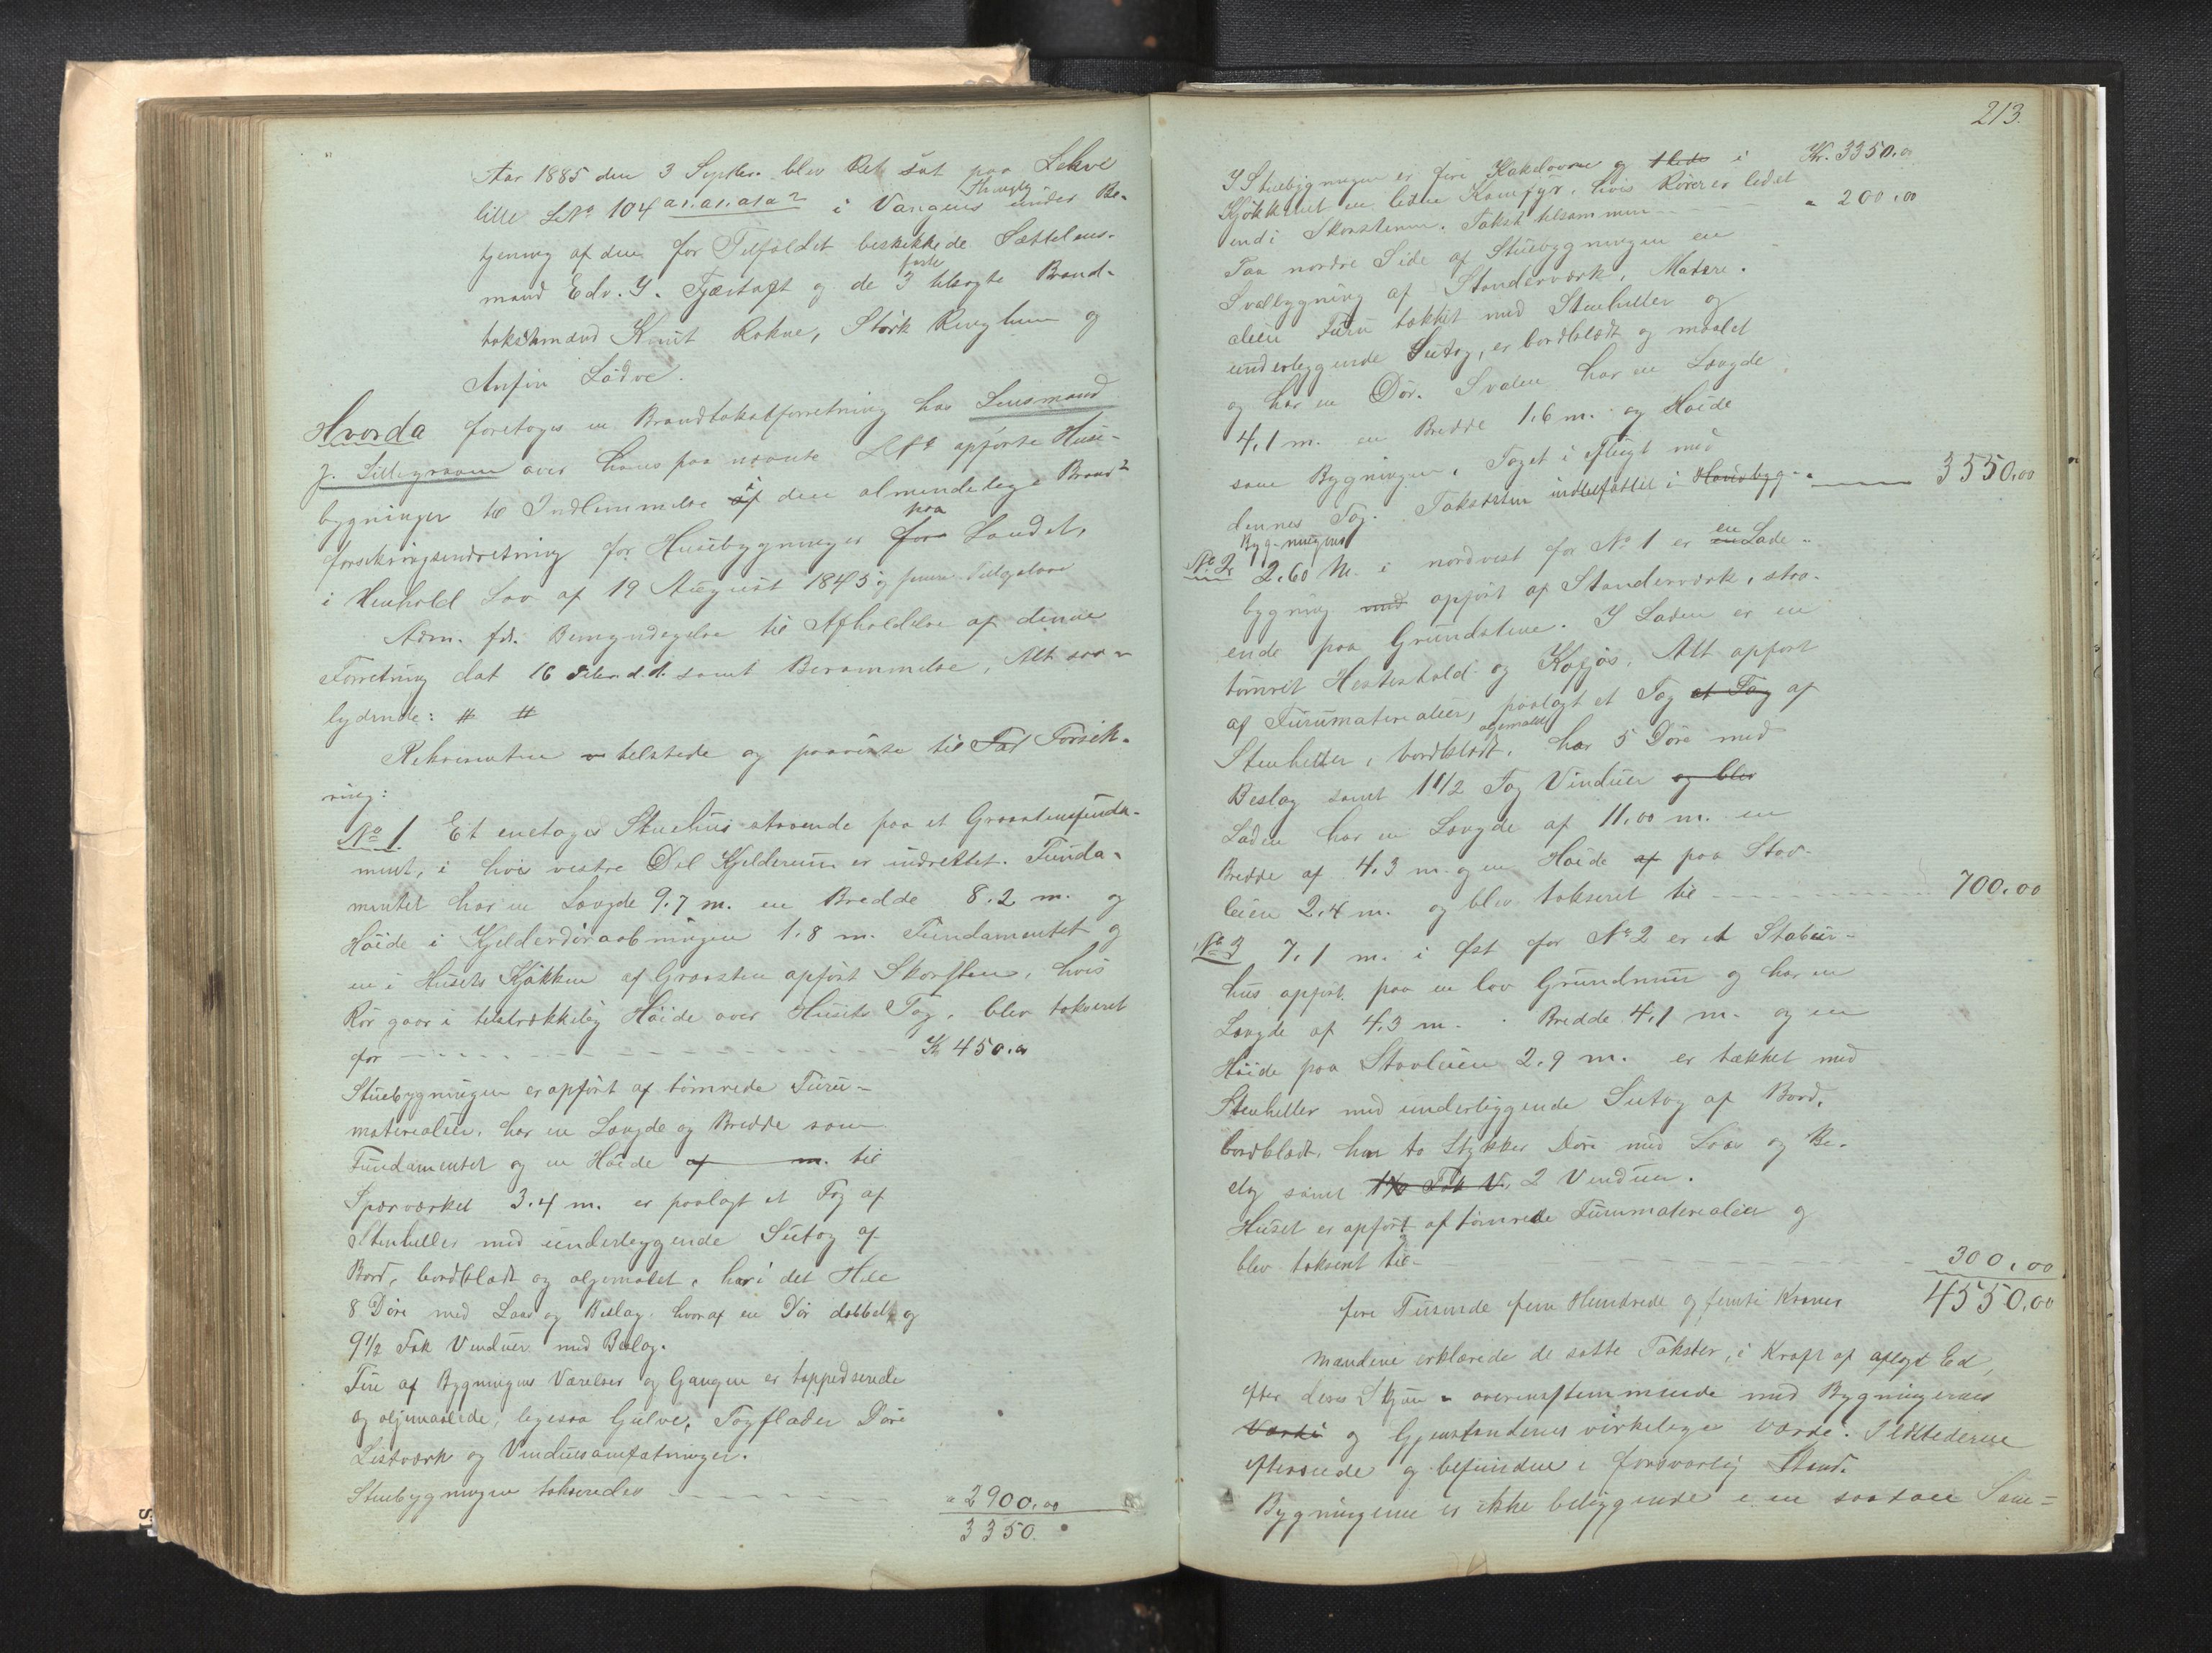 Aar 1885 den 3 Septbr. blev Ret sat paa Lekve
lille LNo 104 a1.a1.a1a2 i Vangens Thinglag under Be-
tjening af den for Tilfældet beskikkede Sættelens-
mand Edv. Y. og de 3 faste tilsagte Brand-
takstmænd Knut Rokne, Stark Ringheim og
Anfin Lødve.
Hvorda foretoges en Brandtakstforretning hos Lensmand
J. Lillegraven over hans paa nævnte LNo opførte Huse-
bygninger til Indlemmelse i den almindelige Brand-
forsikringsindretning for Husebygninger paa Landet,
i Henhold Lov af 19 August 1845 og senere Tillægslove
Adm. fdl. Bemyndigelse til Afholdelse af denne
Forretning dat 16 samt Berammelse, Alt saa-
lydende: # #
Rekvirenten tilstede og paaviste til Fad Forsik-
ring:
No 1. Et enetages Stuehus staaende paa et Graastensfunda-
ment, i hvis vestre Del Kjelderrum er indrettet. Funda-
mentet har en Længde 9.7 m. en Bredde 8.2 m. og
Høide i Kjelderdøraabningen 1.8 m. Fundamentet og
en i Husets Kjøkken af Graasten opført Skorsten, hvis
Rør gaar i tilstrækkelig Høide over Husets Tag, blev takseret
for - - - Kr 450.00
Stuebygningen er opført af tømrede Furu-
materialier, har en Længde og Bredde som
Fundamentet og en Høide af m. til
Sperværket 3.4 m. er paalagt et Tag af
Stenheller med underliggende Sutag af
Bord, bordklædt og oljemalet, har i det Hele
8 Døre med Laas og Beslag, hvoraf en Dør dobbelt og
9 1/2 Fak Vinduer med Beslag.
Fire af Bygningens Værelser og Gangen er tappedserede
og oljemalede, ligesaa Gulve, Tagflader Døre
Listværk og Vinduesomfatninger.
Stuebygningen takseredes - - - " 2900.00
3350.
213.
I Stuebygningen er fire Kakelovne og i Kr. 3350.00
Kjøkkenet en liden Komfyr, hvis Rører er ledet
ind i Skorstenen. Takst tilsammen - - " 200.00
Paa nordre Side af Stuebygningen en
Svalbygning af Standerværk, Materi-
alier Furu tækket med Stenheller og
underliggende Sutag, er bordklædt og maalet
og har en Dør. Svalen har en Længde
4,1 m. en Bredde 1.6 m. og Høide
som Bygningen, Taget i Flugt med
dennes Tag. Taksten indbefattet i Hovedbyg-
Bygningens - - - 3550.00
No 2. 2.60 M. i nordvest for No 1 er en Lade-
bygning med opført af Standerværk, staa-
ende paa Grundstene. I Laden er en
tømret Hestestald og Kofjøs, Alt opført
af Furumaterialier, paalagt et Tag et Tag af
Stenheller, bordklædt, oljemalet har 5 Døre med
Beslag samt 1 1/2 Fag Vinduer og blev
Laden har en Længde af 11.00 m. en
Bredde af 4.3 m. og en Høide af paa Stav-
leien 2.4 m. og blev takseret til - - - 700.00
No 3 7.1 m. i Øst for No 2 er et Stabur-
hus opført paa en lav Grundmur og har en
Længde af 4.3 m. Bredde 4,1 m. og en
Høide paa Stavleien 2.9 m. er tækket med
Stenheller med underliggende Sutag af Bord,
bordklædt, har to Stykker Døre med Laas og Be-
slag samt 1 1/2 Fak V. 2 Vinduer.
Huset er opført af tømrede Furumaterialier og
blev takseret til - - - 300.00
fire Tusinde fem Hundrede og femti Kroner 4550.00
Mændene erklærede de satte Takster, i Kraft af aflagt Ed,
efter deres Skjøn overensstemmende med Bygningernes
Værdi og Gjenstandenes virkelige Værdi. Ildstederne
efterseede og befundne i forsvarlig Stand.
Bygningerne er ikke beliggende i en saadan Sam-